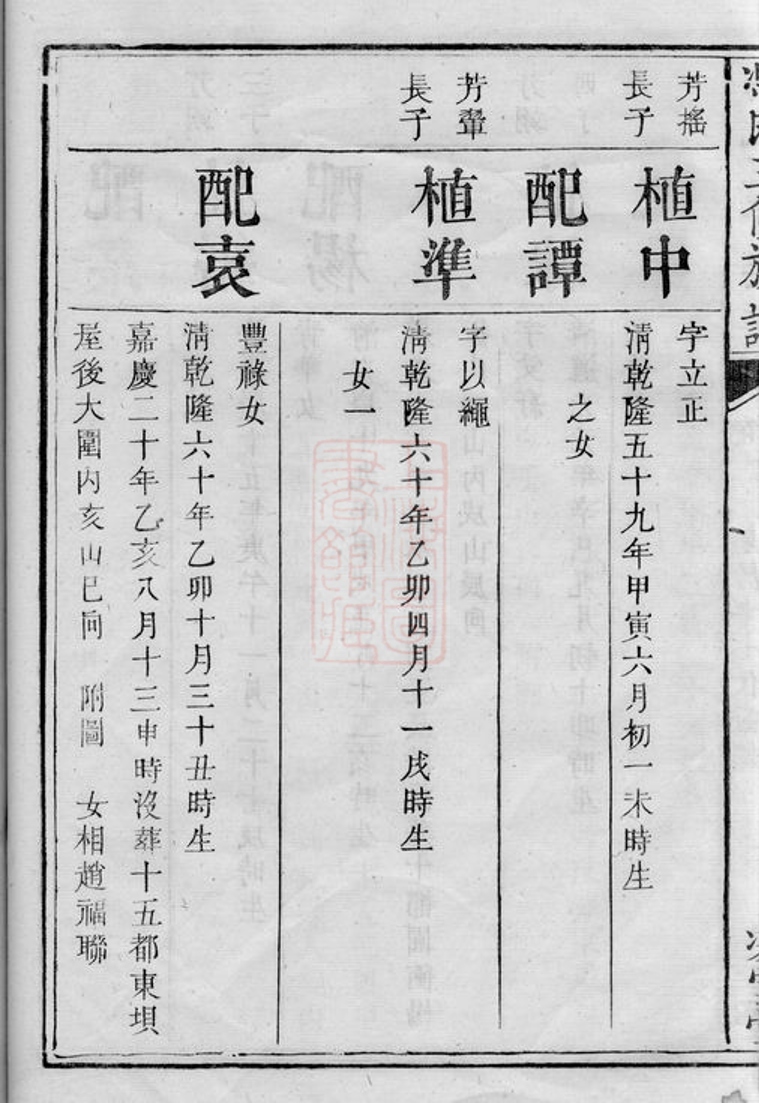 氏
修族譜
芳搖
長子
植中
字立正
清乾隆五十九年甲寅六月初一未時生
配譚
之女
芳輦
長子
植準
字以繩
清乾隆六十年乙卯四月十一戌時生
女一
配袁
豐祿女
清乾隆六十年乙卯十月三十丑時生
嘉慶二十年乙亥八月十三申時沒葬十五都東垻
屋後大圍內亥山巳向 附圖 女相趙福聯